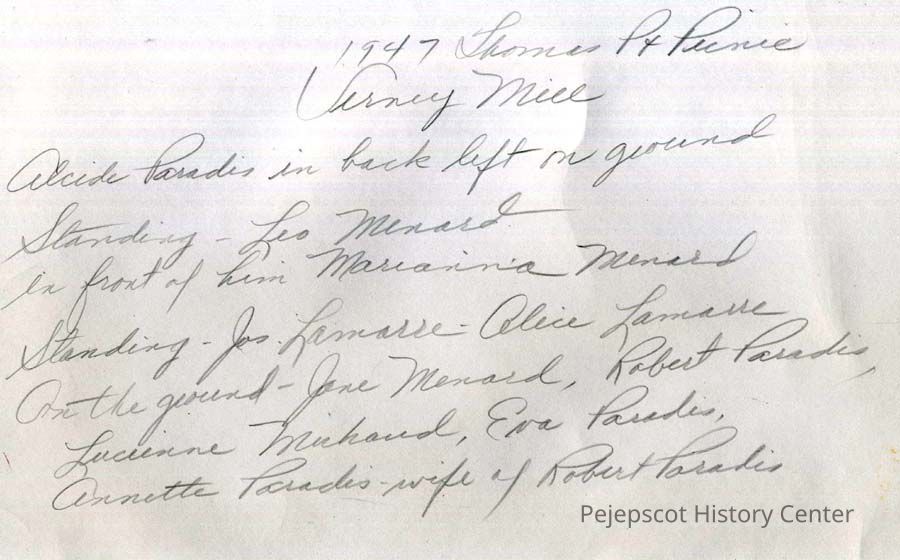 1947 Thomas Pt Picnic
Verney Mill
Alcide Paradis in back left on ground
Standing - Leo Menard
in front of him Marianna Menard
Standing - Jos. Lamarre - Alice Lamarre
On the ground - Jane Menard, Robert Paradis,
Lucienne Michaud, Eva Paradis,
Annette Paradis - wife of Robert Paradis
Pejepscot History Center